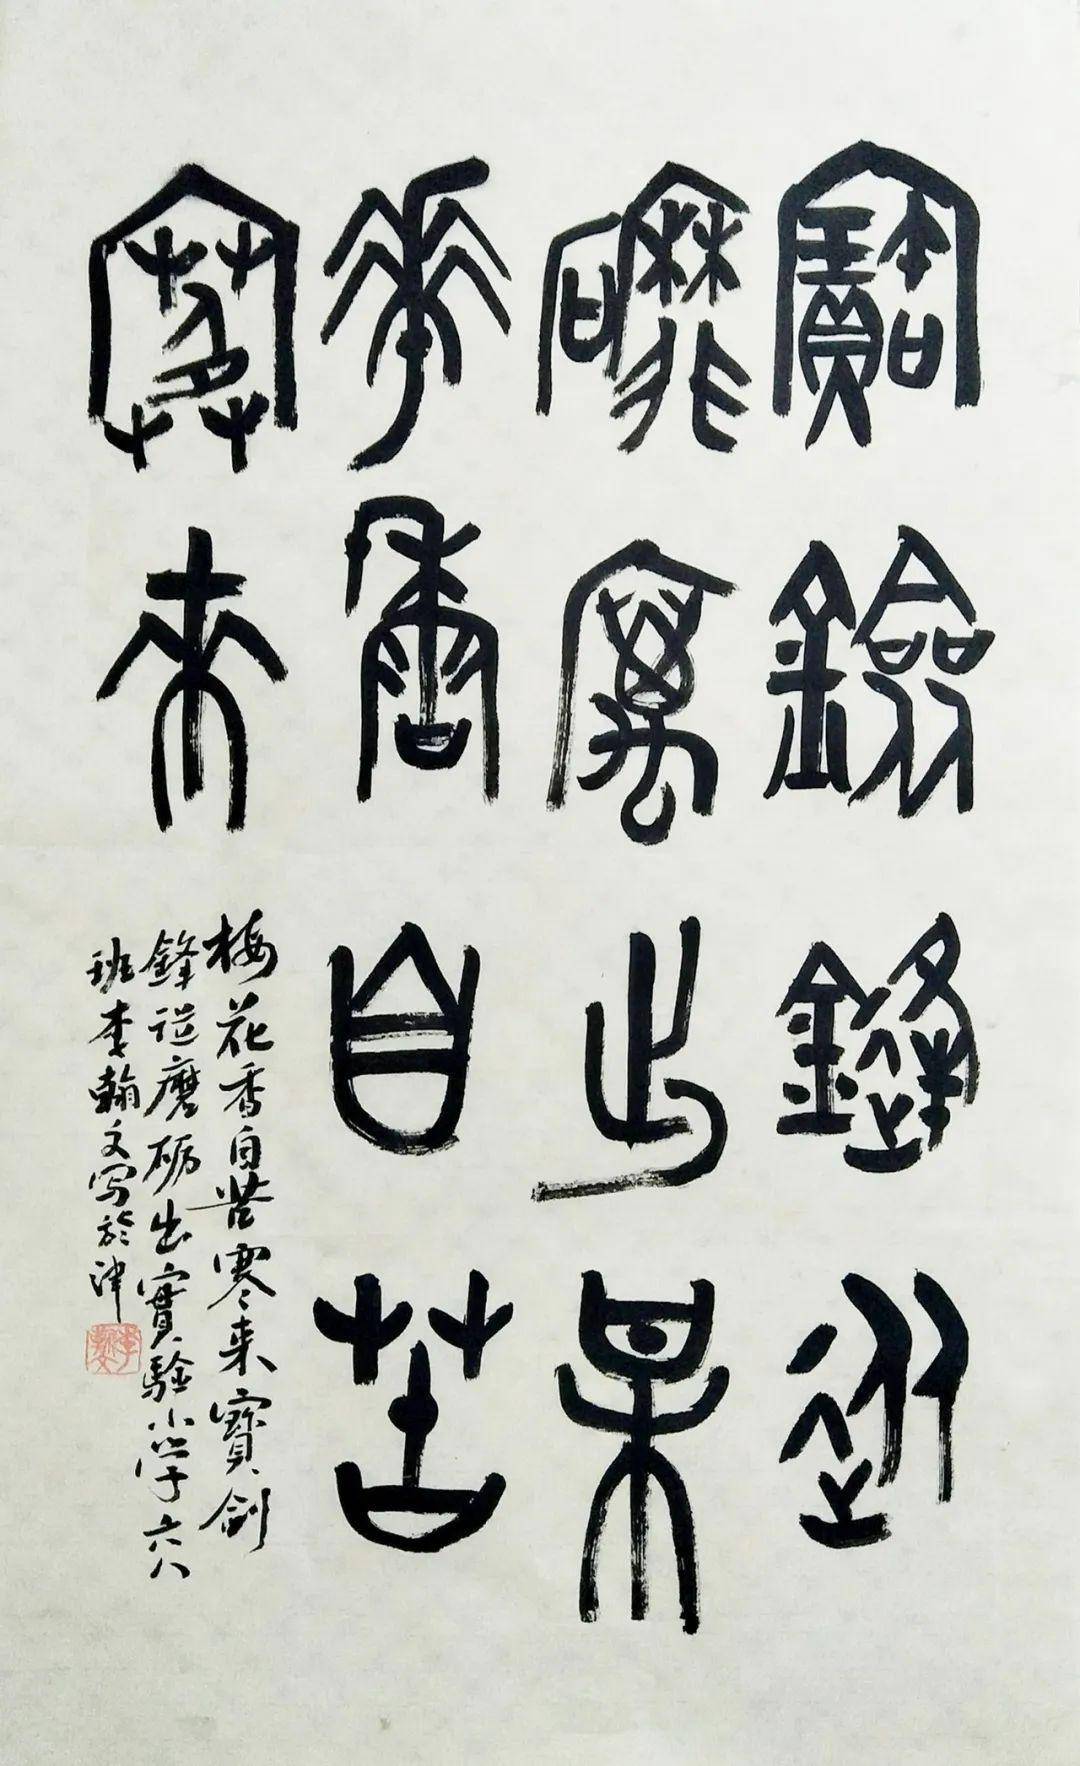 寶鐱鏠從
磨厲出某
華香自苦
寒來
梅花香自苦寒来寶劍
鋒從磨砺出實驗小學六八
班李翰文写於津